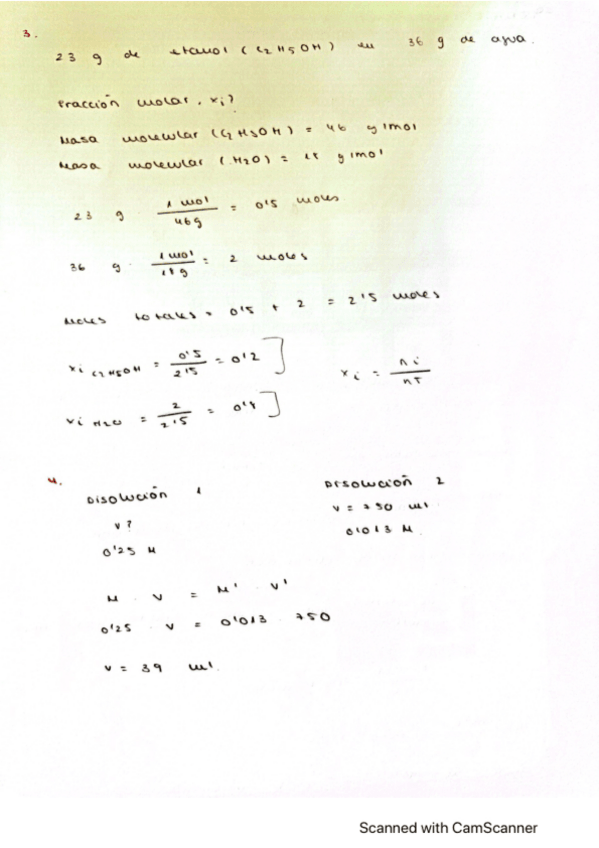 3.
23 g de etanol (C2H5OH) en 36 g de agua.
Fracción molar. xi?
Masa molecular (C2H5OH) = 46 g/mol
Masa molecular (H2O) = 18 g/mol
23 g · 1 mol / 46g = 0'5 moles
36 g · 1 mol / 18g = 2 moles
Moles totales = 0'5 + 2 = 2'5 moles
xi C2H5OH = 0'5 / 2'5 = 0'2]
xi = ni / nT
xi H2O = 2 / 2'5 = 0'8]
4.
Disolución 1
V?
0'25 M
Disolución 2
V = 750 ml
0'013 M
M · V = M' · V'
0'25 · V = 0'013 · 750
V = 39 ml.
Scanned with CamScanner